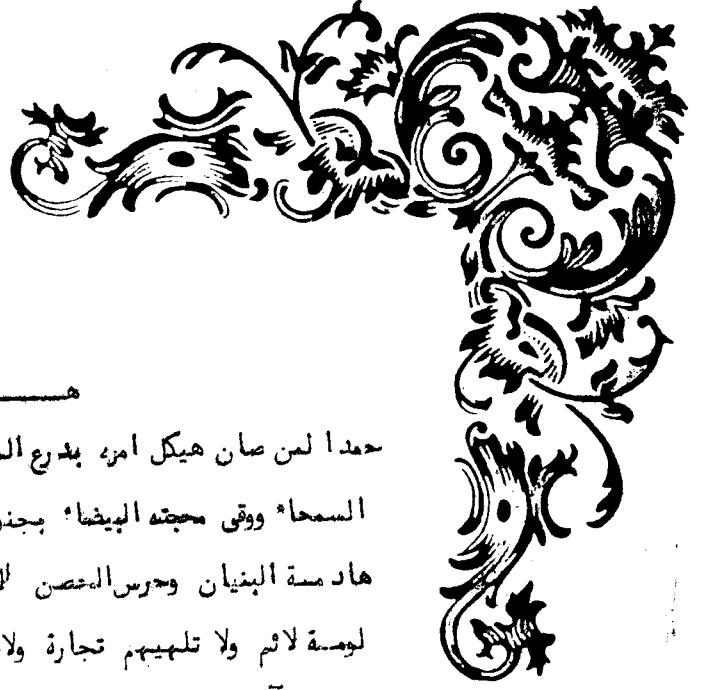 حمدا لمن صان هيكل امره بدرع
السمحاء ووقى محجته البيضاء
هادمة البنيان وحرس الحصن
لومة لائم ولا تلهيهم تجارة ولا